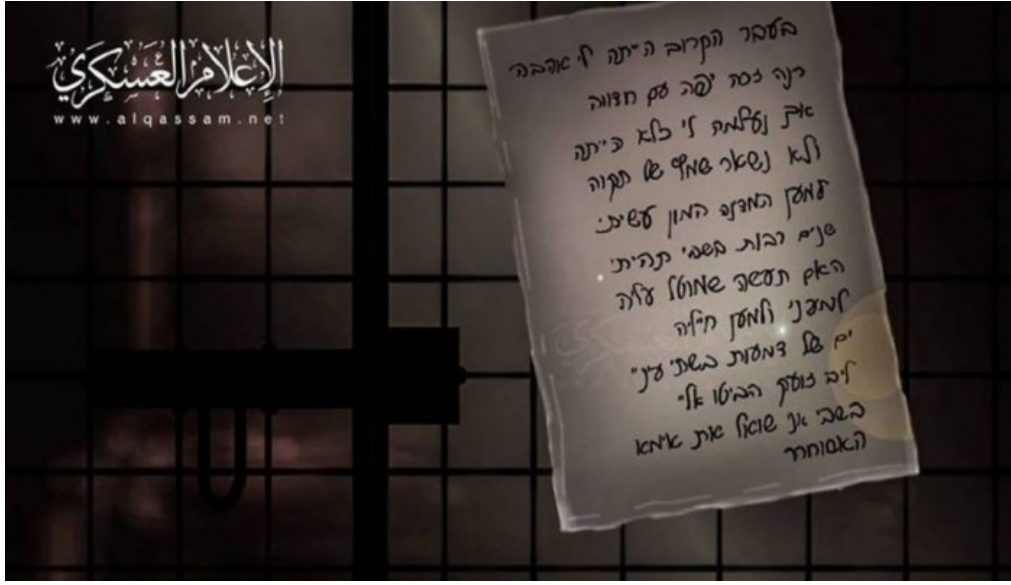 الإعلام العسكري
www.alqassam.net
בעבר הקרוב הייתה לי אהבה
רנה זכה יפה עם חדווה
אך נעלמה לי כלא הייתה
ולא נשאר שמץ של תקוה
למען המדינה המון עשיתי
שנים רבות בשבי תהיתי
האם תעשה שמוטל עליה
למעני ולמען חייליה
ים של דמעות בשתי עיניי
ליב זועק הביטו אליי
בשבי אני שואל את אימא
האסוחרר